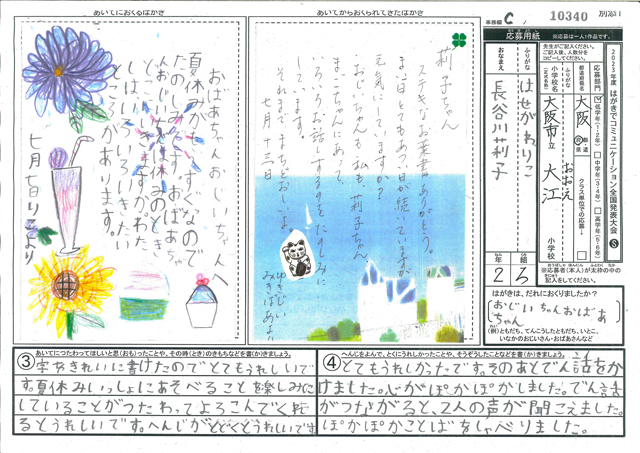 あいてにおくるはがき
おばあちゃんおじいちゃんへ
夏休みがもうすぐなので
たのしみです。おばあちゃ
んおじいちゃんは休みのとき
どこへいきますか。わた
しはいろいろいきたい
ところがあります。
七月七日りこより
あいてからおくられてきたはがき
莉子ちゃん
ステキなお葉書ありがとう。
まい日とてもあつい日が続いていますが
元気にしていますか?
おじいちゃんも私も、莉子ちゃん
にあって
いろいろお話しするのをたのしみに
います。
それまでまちどおしいよ。
七月十三日
事務欄 C
10340
別添1
応募用紙
※応募は一人1作品です。
2023年度 はがきでコミュニケーション全国発表大会
先生がご記入ください。
ご記入後、人数分を
コピーしてください。
応募部門
低学年(1・2年)
中学年(3・4年)
高学年(5・6年)
都道府県名
大阪
都道府県
クラス単位での応募
ふりがな
おおえ
小学校名
大阪市立 大江
小学校
ふりがな
はせがわりこ
おなまえ
長谷川莉子
年 組
2 ろ
※応募者(本人)が太枠の中の
記入をしてください。
はがきは、だれにおくりましたか?
おじいちゃんおばあ
ちゃん
(例)ともだち、てんこうしたともだち、いとこ、
いなかのおじいさん・おばあさんなど
③
あいてにつたわってほしいと思(おも)ったことや、その時(とき)のきもちなどを書(か)きましょう。
字をきれいに書けたのでとてもうれしいで
す。夏休みいっしょにあそべることを楽しみに
していることがつたわってよろこんでくれ
るとうれしいです。へんじがとどくとうれしいです
④
へんじをよんで、とくにうれしかったことや、そうぞうしたことなどを書(か)きましょう。
とてもうれしかったです。そのあとでん話をか
けました。心がぽかぽかしました。でん話
がつながると、2人の声が聞こえました。
ぽかぽかことばをしゃべりました。